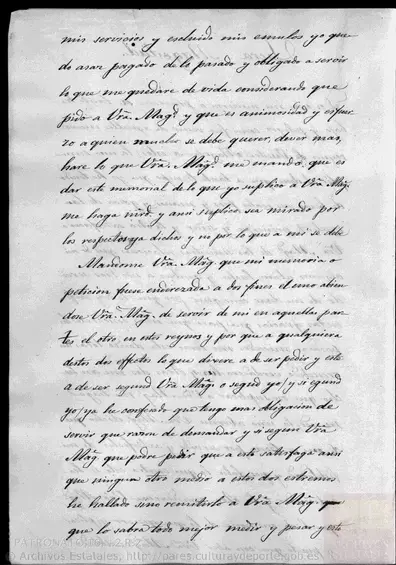 mis servicios y escluido mis emulos yo que
do asar pagado de lo pasado y obligado a servir
lo que me quedare de vida considerando que
pido a Vra. Magd. y que es animosidad y esfuer
zo a quien mucho se debe querer, decir mas,
hare lo que Vra. Magd. me mando, que es
dar este memorial de lo que yo suplico a Vra Magd.
me haga mrd. y ansi suplico sea mirado por
los respectos ya dichos y no por lo que a mi se debe
Mandome Vra. Mag. que mi memoria o
peticion fuese enderezada a dos fines el uno abien
dose Vra. Mag. de servir de mi en aquellas par
tes el otro en estos reynos y por que a qualquiera
destos dos effetos lo que diere a de ser pedir y este
a de ser segund Vra Mag. o segud yo / y si segund
yo / ya he confesado que tengo mas obligacion de
servir que razon de demandar y si segun Vra
Mag. que podre pedir que a esto satisfaga ansi
que ningun otro medio a estos dos estremos
he hallado sino remitirlo a Vra Mag.
que lo sabra todo mejor medir y pesar y este
PATRONATO
© Archivos Estatales, http://pares.culturaydeporte.gob.es